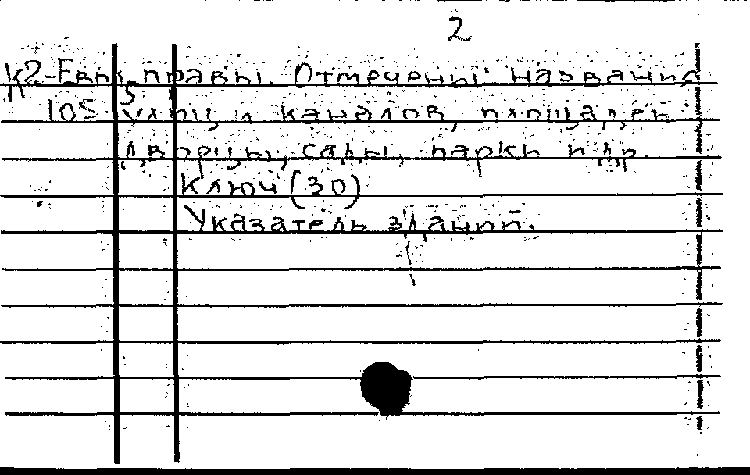 2
К2-Евр. правы. Отмечены: названия
105 улиц и каналов, площадей,
дворцы, сады, парки и др.
Ключ (30)
Указатель зданий.